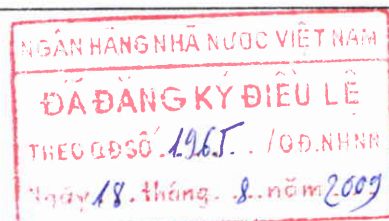 NGÂN HÀNG NHÀ NƯỚC VIỆT NAM
ĐÃ ĐĂNG KÝ ĐIỀU LỆ
THEO QĐ SỐ 1965. /QĐ.NHNN
Ngày 18. tháng. 8. năm 2009